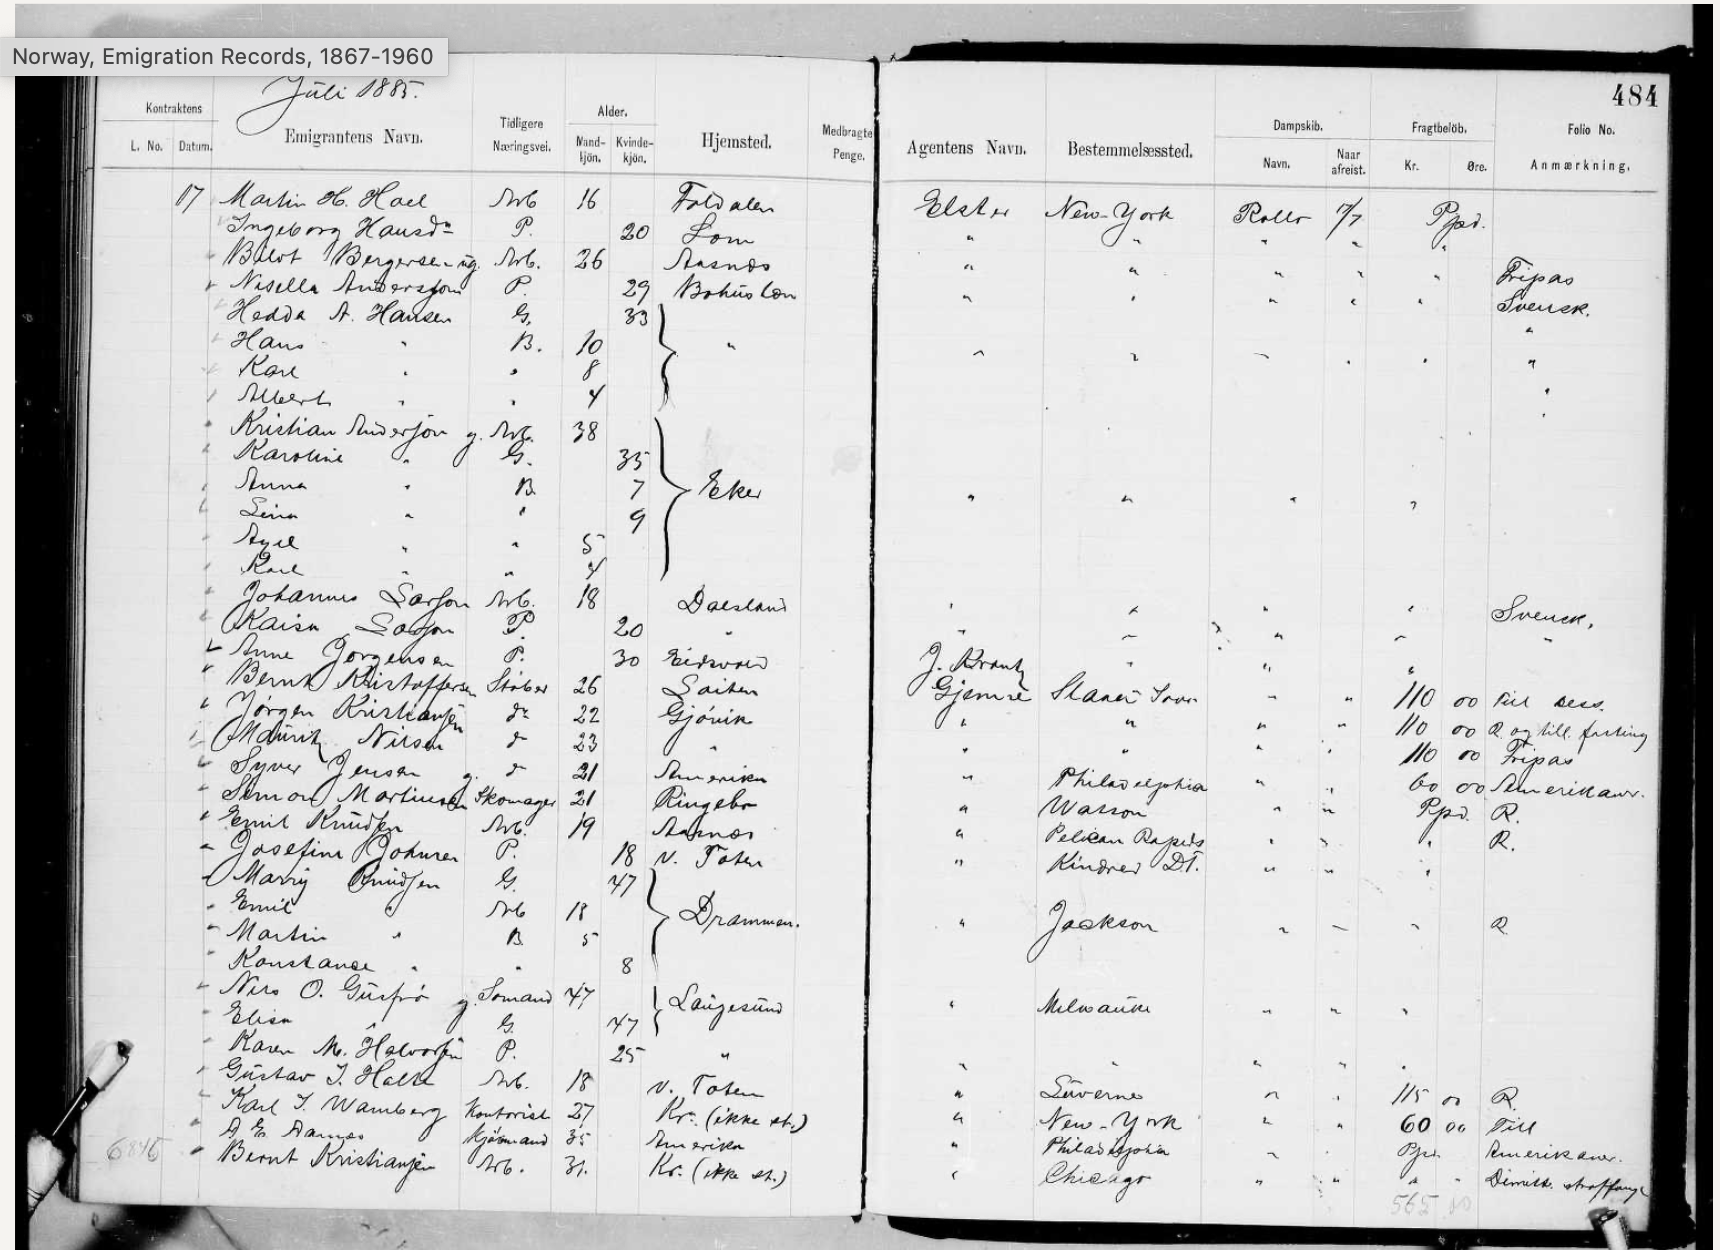 Norway, Emigration Records, 1867-1960
Juli 1885.
484
Kontraktens
L. No. Datum.
Emigrantens Navn.
Tidligere Næringsvei.
Alder.
Mand-kjön. Kvinde-kjön.
Hjemsted.
Medbragte Penge.
Agentens Navn.
Bestemmelsessted.
Dampskib.
Navn. Naar afreist.
Fragtbelöb.
Kr. Øre.
Folio No.
Anmærkning.
17 Martin H. Hoel Arb 16 Foldalen Elster New-York Rollo 17/7 Ppd.
Ingeborg Hansdr P. 20 Lom " " " " "
Bergersen ug. Arb. 26 Aasnes " " " " " Fripas
Andersson P. 29 Bohuslen " " " " " Svensk.
Hedda A. Hansen G. 33 "
Hans " B. 10 " " " " " " "
Karl " " 8 "
Albert " " 4 "
Kristian Andersson g. Arb. 38
Karoline " G. 35
Anna " B 7 Eker " " " "
Lina " " 9
Axel " " 5
Karl " " 4
Johannes Larsson Arb. 18 Dalsland " " " " Svensk.
Kaisa Larsson P. 20 " " " " " "
Anne Jørgensen P. 30 Eidsvold J. Krantz " " "
Bernt Kristoffersen Støber 26 Løiten Gjemre " " 110 00 till
Jørgen Kristiansen do 22 Gjövik " " " " 110 00 R. og till.
Mauritz Nilsen do 23 " " " " " 110 00 Fripas
Syver Jensen g. do 21 Amerika " Philadelphia " " 60 00 Amerikanr.
Simon Martinsen Skomager 21 Ringebo " Watson " " Ppd. R.
Emil Knudsen Arb. 19 Aasnes " Pelican Rapids " " " R.
Josefine Johnsen P. 18 v. Toten " Kindred D.T. " " "
Knudsen G. 47
Emil " Arb 18 Drammen. " Jackson " " " R.
Martin " B. 5
Konstance " " 8
Nils O. g. Sømand 47 Langesund " Milwaukee " " "
Elisa " G. 47
Karen M. Halvorsen P. 25 " " " " " "
Gustav J. Arb. 18 v. Toten " Luverne " " 115 00 R.
Karl J. Wamberg Kontorist 27 Kr. (ikke st.) " New-York " " 60 00 Till
A E Aarnes Kjøbmand 35 Amerika " Philadelphia " Ppd. Amerikaner.
6845 Bernt Kristiansen Arb. 31. Kr. (ikke st.) " Chicago " " " " Dimitt. straffange
565 00